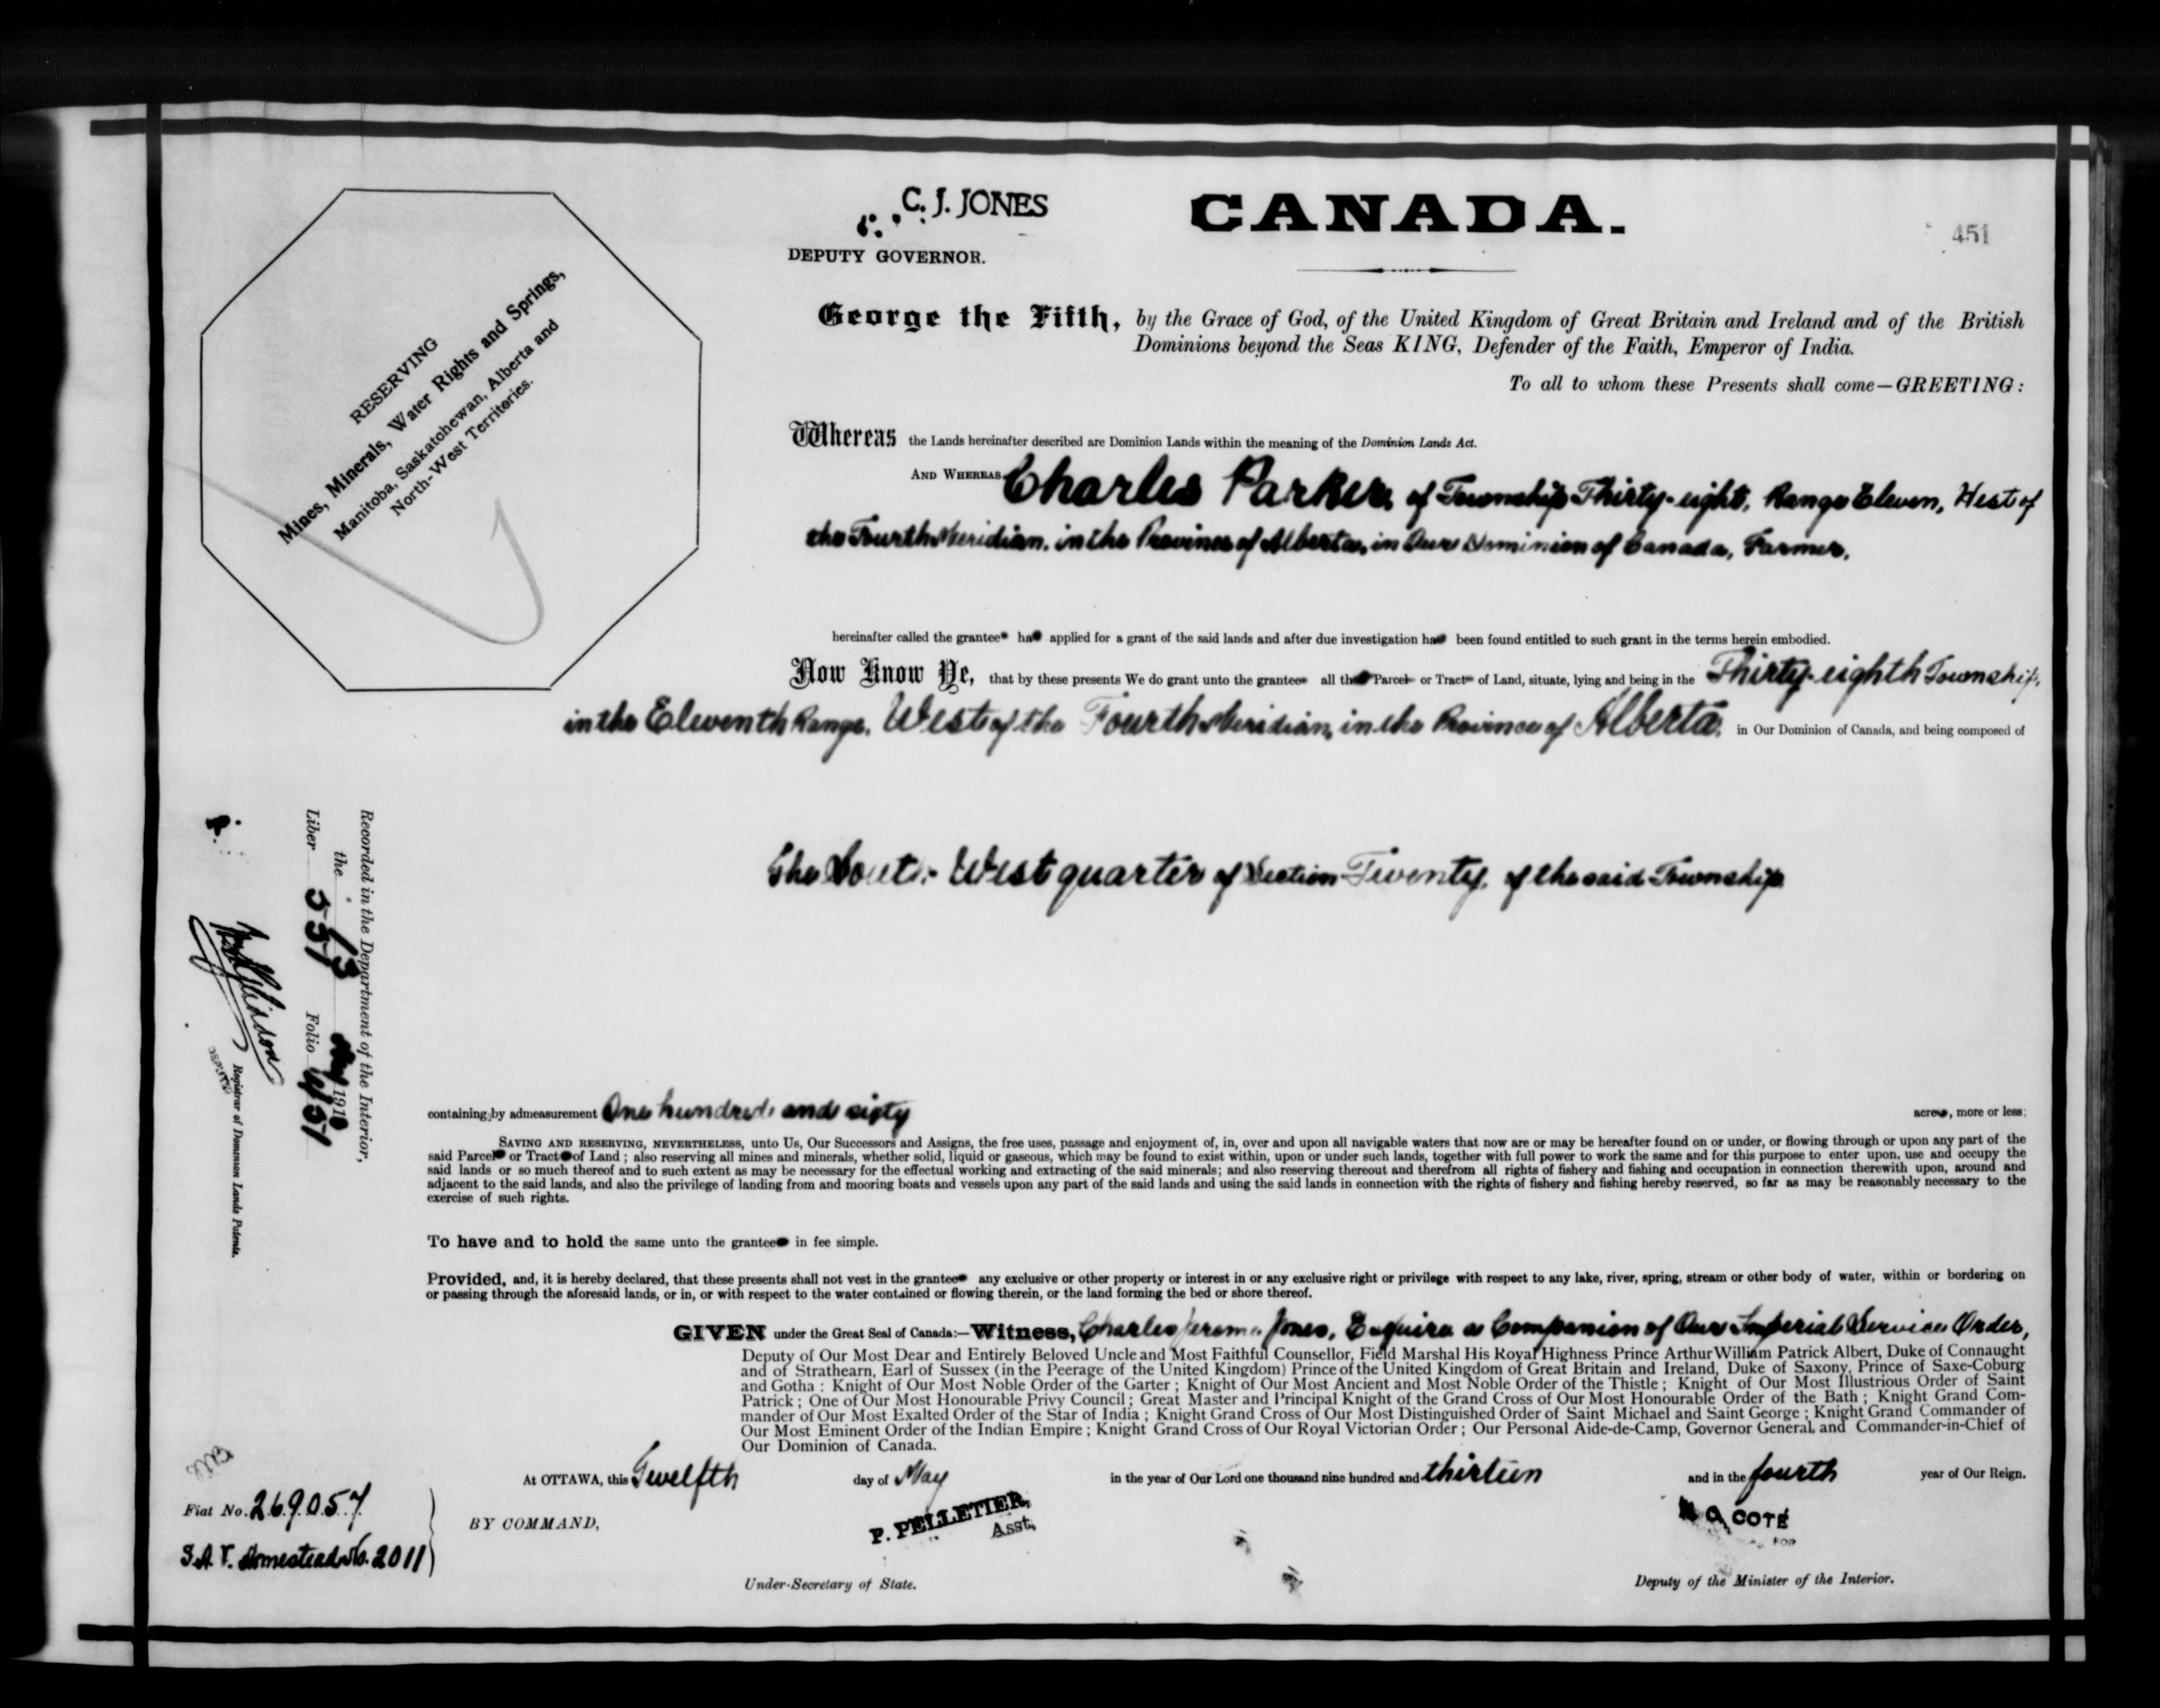 C. J. JONES
DEPUTY GOVERNOR.
CANADA.
451
RESERVING
Mines, Minerals, Water Rights and Springs,
Manitoba, Saskatchewan, Alberta and
North-West Territories.
George the Fifth, by the Grace of God, of the United Kingdom of Great Britain and Ireland and of the British
Dominions beyond the Seas KING, Defender of the Faith, Emperor of India.
To all to whom these Presents shall come—GREETING:
Whereas the Lands hereinafter described are Dominion Lands within the meaning of the Dominion Lands Act.
AND WHEREAS Charles Parker, of Township Thirty-eight, Range Eleven, West of
the Fourth Meridian, in the Province of Alberta, in Our Dominion of Canada, Farmer,
hereinafter called the grantee has applied for a grant of the said lands and after due investigation has been found entitled to such grant in the terms herein embodied.
Now Know Ye, that by these presents We do grant unto the grantee all that Parcel or Tract of Land, situate, lying and being in the Thirty-eighth Township,
in the Eleventh Range, West of the Fourth Meridian, in the Province of Alberta, in Our Dominion of Canada, and being composed of
The South-West quarter of Section Twenty, of the said Township
containing by admeasurement One hundred and sixty acres, more or less;
SAVING AND RESERVING, NEVERTHELESS, unto Us, Our Successors and Assigns, the free uses, passage and enjoyment of, in, over and upon all navigable waters that now are or may be hereafter found on or under, or flowing through or upon any part of the
said Parcel or Tract of Land; also reserving all mines and minerals, whether solid, liquid or gaseous, which may be found to exist within, upon or under such lands, together with full power to work the same and for this purpose to enter upon, use and occupy the
said lands or so much thereof and to such extent as may be necessary for the effectual working and extracting of the said minerals; and also reserving thereout and therefrom all rights of fishery and fishing and occupation in connection therewith upon, around and
adjacent to the said lands, and also the privilege of landing from and mooring boats and vessels upon any part of the said lands and using the said lands in connection with the rights of fishery and fishing hereby reserved, so far as may be reasonably necessary to the
exercise of such rights.
To have and to hold the same unto the grantee in fee simple.
Provided, and, it is hereby declared, that these presents shall not vest in the grantee any exclusive or other property or interest in or any exclusive right or privilege with respect to any lake, river, spring, stream or other body of water, within or bordering on
or passing through the aforesaid lands, or in, or with respect to the water contained or flowing therein, or the land forming the bed or shore thereof.
GIVEN under the Great Seal of Canada:—Witness, Charles Jerome Jones, Esquire a Companion of Our Imperial Service Order,
Deputy of Our Most Dear and Entirely Beloved Uncle and Most Faithful Counsellor, Field Marshal His Royal Highness Prince Arthur William Patrick Albert, Duke of Connaught
and of Strathearn, Earl of Sussex (in the Peerage of the United Kingdom) Prince of the United Kingdom of Great Britain and Ireland, Duke of Saxony, Prince of Saxe-Coburg
and Gotha: Knight of Our Most Noble Order of the Garter; Knight of Our Most Ancient and Most Noble Order of the Thistle; Knight of Our Most Illustrious Order of Saint
Patrick; One of Our Most Honourable Privy Council; Great Master and Principal Knight of the Grand Cross of Our Most Honourable Order of the Bath; Knight Grand Com-
mander of Our Most Exalted Order of the Star of India; Knight Grand Cross of Our Most Distinguished Order of Saint Michael and Saint George; Knight Grand Commander of
Our Most Eminent Order of the Indian Empire; Knight Grand Cross of Our Royal Victorian Order; Our Personal Aide-de-Camp, Governor General, and Commander-in-Chief of
Our Dominion of Canada.
At OTTAWA, this Twelfth day of May in the year of Our Lord one thousand nine hundred and thirteen and in the fourth year of Our Reign.
BY COMMAND,
P. PELLETIER,
Asst.
Under-Secretary of State.
N O COTÉ
FOR
Deputy of the Minister of the Interior.
Fiat No. 269057
S.A.V. Homestead No. 2011
Recorded in the Department of the Interior,
the 13 May 1913
Liber 551 Folio 451
Registrar of Dominion Lands Patents.
DEPUTY